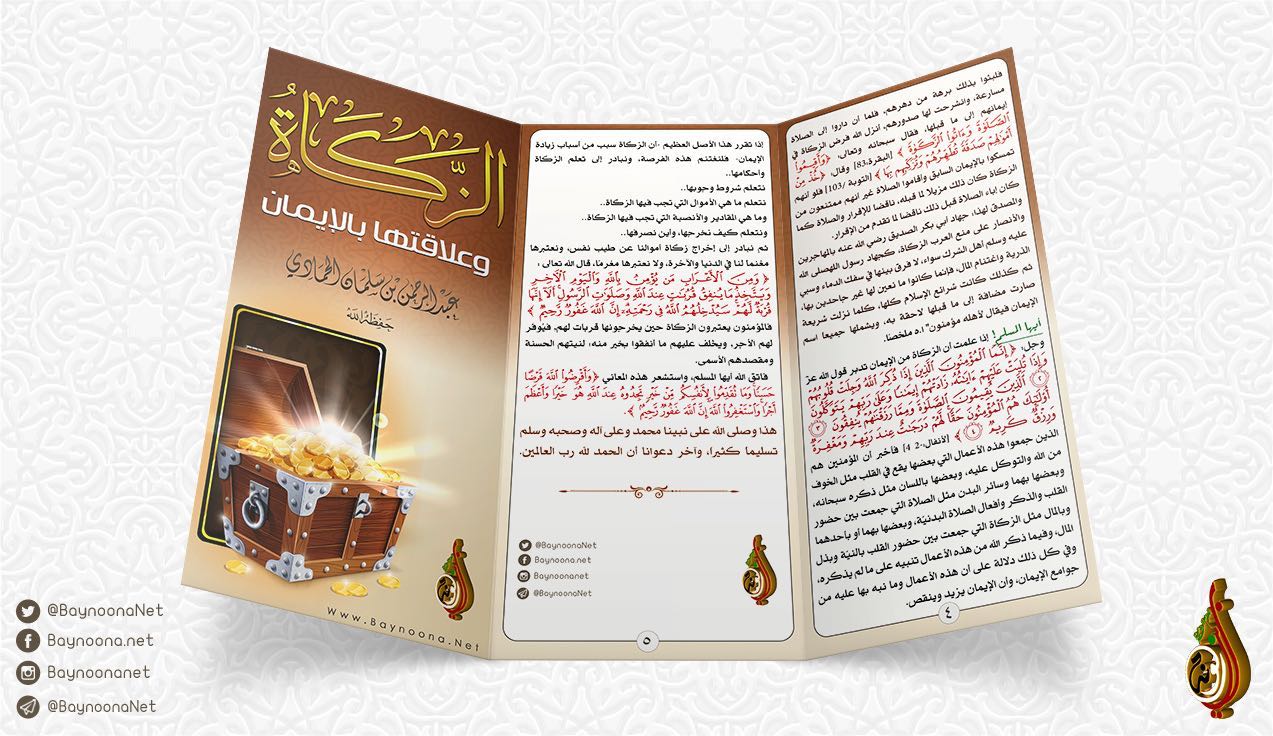 الزَّكَاةُ
وعلاقتها بالإيمان
عبد الرحمن بن سلمان الحمادي
حفظه الله
www.Baynoona.Net
فلبثوا بذلك برهة من دهرهم، فلما أن داروا إلى الصلاة
مسارعة، وانشرحت لها صدورهم، أنزل الله فرض الزكاة في
إيمانهم إلى ما قبلها، فقال سبحانه وتعالى، ﴿وَأَقِيمُوا
الصَّلَوٰةَ وَءَاتُوا الزَّكَوٰةَ﴾ [البقرة،83] وقال، ﴿خُذْ مِنْ
أَمْوَٰلِهِمْ صَدَقَةً تُطَهِّرُهُمْ وَتُزَكِّيهِم بِهَا﴾ [التوبة /103] فلو أنهم
تمسكوا بالإيمان السابق وأقاموا الصلاة غير أنهم ممتنعون من
الزكاة كان ذلك مزيلا لما قبله، ناقضا للإقرار والصلاة كما
كان إباء الصلاة قبل ذلك ناقضا لما تقدم من الإقرار.
والمصدق لهذا، جهاد أبي بكر الصديق رضي الله عنه بالمهاجرين
والأنصار على منع العرب الزكاة، كجهاد رسول الله صلى الله
عليه وسلم أهل الشرك سواء، لا فرق بينها في سفك الدماء وسبي
الذرية واغتنام المال، فإنما كانوا ما نعين لها غير جاحدين بها،
ثم كذلك كانت شرائع الإسلام كلها، كلما نزلت شريعة
صارت مضافة إلى ما قبلها لاحقة به، ويشملها جميعا اسم
الإيمان فيقال لأهله مؤمنون" ا.ه ملخصا.
أيها المسلم! إذا علمت أن الزكاة من الإيمان تدبر قول الله عز
وجل، ﴿إِنَّمَا الْمُؤْمِنُونَ الَّذِينَ إِذَا ذُكِرَ اللَّهُ وَجِلَتْ قُلُوبُهُمْ
وَإِذَا تُلِيَتْ عَلَيْهِمْ ءَايَٰتُهُ زَادَتْهُمْ إِيمَٰنًا وَعَلَىٰ رَبِّهِمْ يَتَوَكَّلُونَ
٢ الَّذِينَ يُقِيمُونَ الصَّلَوٰةَ وَمِمَّا رَزَقْنَٰهُمْ يُنفِقُونَ ٣
أُولَٰئِكَ هُمُ الْمُؤْمِنُونَ حَقًّا لَهُمْ دَرَجَٰتٌ عِندَ رَبِّهِمْ وَمَغْفِرَةٌ
وَرِزْقٌ كَرِيمٌ ٤﴾ [الأنفال،2 4] فأخبر أن المؤمنين هم
الذين جمعوا هذه الأعمال التي بعضها يقع في القلب مثل الخوف
من الله والتوكل عليه، وبعضها باللسان مثل ذكره سبحانه،
وبعضها بهما وسائر البدن مثل الصلاة التي جمعت بين حضور
القلب والذكر وأفعال الصلاة البدنيّة، وبعضها بهما أو بأحدهما
وبالمال مثل الزكاة التي جمعت بين حضور القلب بالنيّة وبذل
المال، وفيما ذكر الله من هذه الأعمال تنبيه على ما لم يذكره،
وفي كل ذلك دلالة على أن هذه الأعمال وما نبه بها عليه من
جوامع الإيمان، وأن الإيمان يزيد وينقص.
٤
إذا تقرر هذا الأصل العظيم -أن الزكاة سبب من أسباب زيادة
الإيمان- فلنغتنم هذه الفرصة، ونبادر إلى تعلم الزكاة
وأحكامها..
نتعلم شروط وجوبها..
نتعلم ما هي الأموال التي تجب فيها الزكاة..
وما هي المقادير والأنصبة التي تجب فيها الزكاة..
ونتعلم كيف نخرجها، وأين نصرفها..
ثم نبادر إلى إخراج زكاة أموالنا عن طيب نفس، ونعتبرها
مغنما لنا في الدنيا والآخرة، ولا نعتبرها مغرما، قال الله تعالى ،
﴿وَمِنَ الْأَعْرَابِ مَن يُؤْمِنُ بِاللَّهِ وَالْيَوْمِ الْآخِرِ
وَيَتَّخِذُ مَا يُنفِقُ قُرُبَٰتٍ عِندَ اللَّهِ وَصَلَوَٰتِ الرَّسُولِ أَلَا إِنَّهَا
قُرْبَةٌ لَّهُمْ سَيُدْخِلُهُمُ اللَّهُ فِي رَحْمَتِهِ إِنَّ اللَّهَ غَفُورٌ رَّحِيمٌ﴾
فالمؤمنون يعتبرون الزكاة حين يخرجونها قربات لهم، فيُوفر
لهم الأجر، ويخلف عليهم ما أنفقوا بخير منه، لنيتهم الحسنة
ومقصدهم الأسمى.
فاتق الله أيها المسلم، واستشعر هذه المعاني ﴿وَأَقْرِضُوا اللَّهَ قَرْضًا
حَسَنًا وَمَا تُقَدِّمُوا لِأَنفُسِكُم مِّنْ خَيْرٍ تَجِدُوهُ عِندَ اللَّهِ هُوَ خَيْرًا وَأَعْظَمَ
أَجْرًا وَاسْتَغْفِرُوا اللَّهَ إِنَّ اللَّهَ غَفُورٌ رَّحِيمٌ﴾.
هذا وصلى الله على نبينا محمد وعلى آله وصحبه وسلم
تسليما كثيرا، وآخر دعوانا أن الحمد لله رب العالمين.
@BaynoonaNet
Baynoona.net
Baynoonanet
@BaynoonaNet
٥
@BaynoonaNet
Baynoona.net
Baynoonanet
@BaynoonaNet